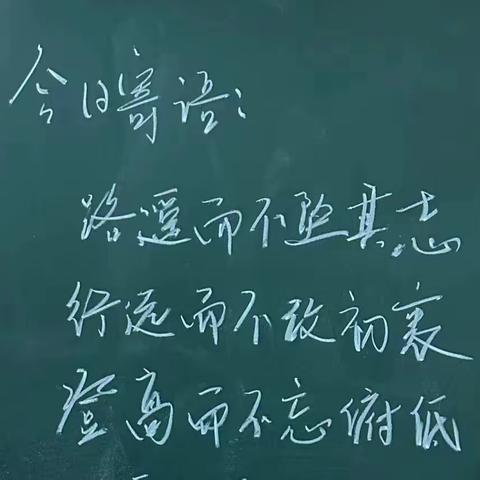 今日寄语:
路遥而不坠其志
行远而不改初衷
登高而不忘俯低